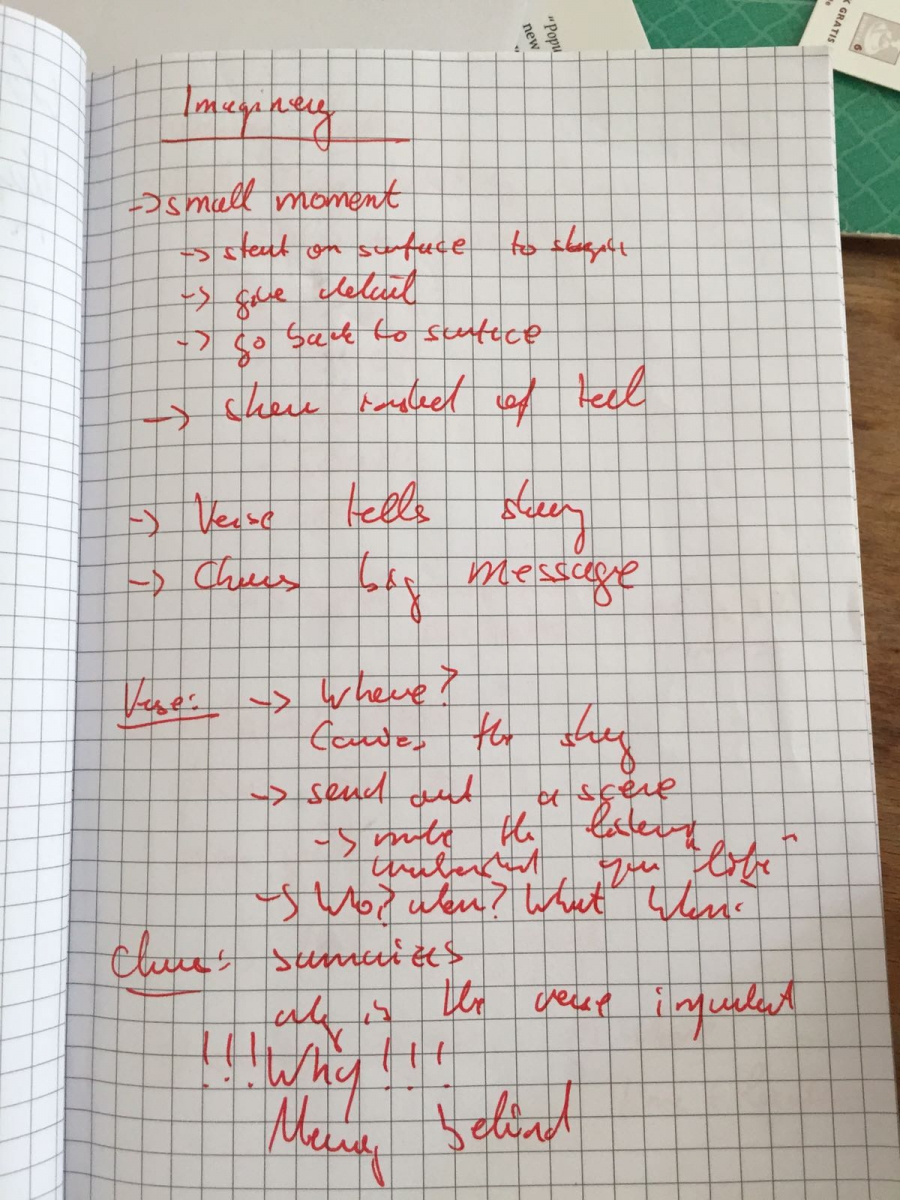 "Popu
new
GRATIS
6
Imaginery
-> small moment
-> start on surface to
-> give detail
-> go back to surface
-> show instead of tell
-> Verse tells story
-> Chorus big message
Verse: -> Where?
Carries the story
-> send out a scene
-> make the listener
understand your "life"
-> Who? when? What Where?
Chorus: summarizes
why is the verse important
!!! Why !!!
Meaning behind